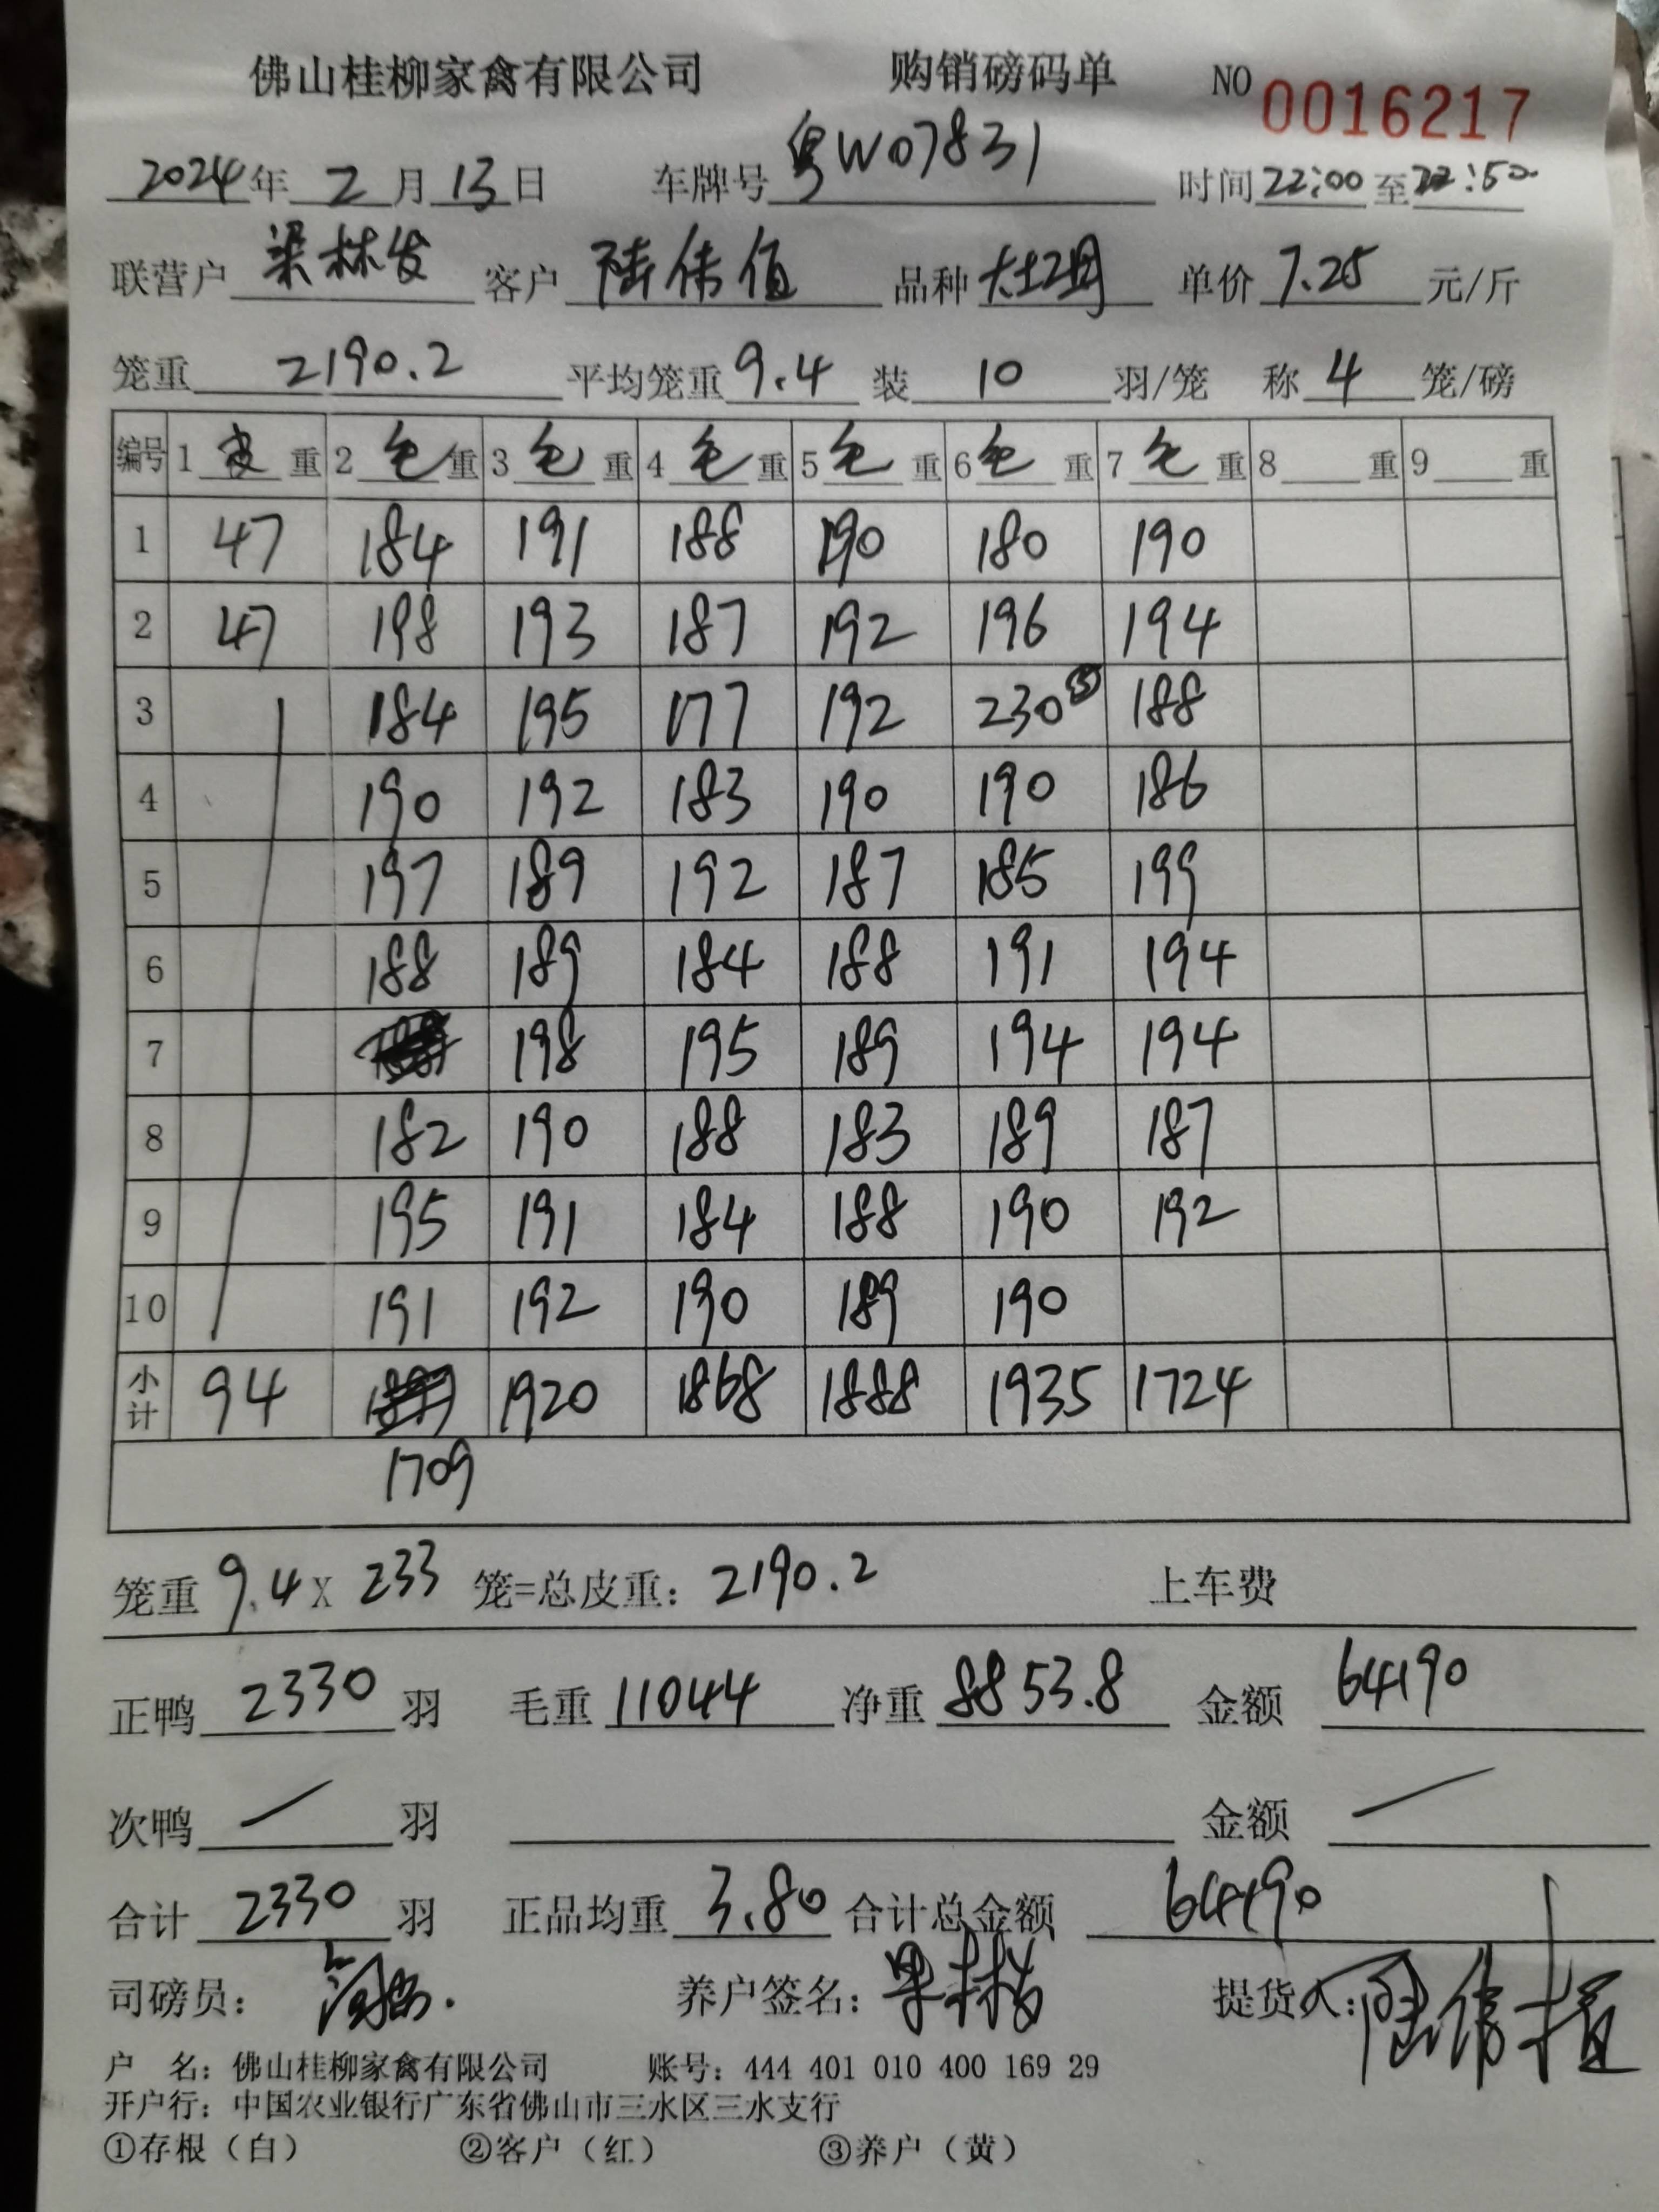 佛山桂柳家禽有限公司 购销磅码单 NO 0016217
2024年 2月 13日 车牌号 粤W07831 时间 22:00 至 22:50
联营户 梁林发 客户 陆伟值 品种 单价 7.25 元/斤
笼重 2190.2 平均笼重 9.4 装 10 羽/笼 称 4 笼/磅
编号 1 皮重 2 毛重 3 毛重 4 毛重 5 毛重 6 毛重 7 毛重 8 重 9 重
1 47 184 191 188 190 180 190
2 47 198 193 187 192 196 194
3 184 195 177 192 230⑤ 188
4 190 192 183 190 190 186
5 197 189 192 187 185 199
6 188 189 184 188 191 194
7 198 195 189 194 194
8 182 190 188 183 189 187
9 195 191 184 188 190 192
10 191 192 190 189 190
小计 94 1920 1868 1888 1935 1724
1709
笼重 9.4 X 233 笼=总皮重: 2190.2 上车费
正鸭 2330 羽 毛重 11044 净重 8853.8 金额 64190
次鸭 / 羽 金额 /
合计 2330 羽 正品均重 3.80 合计总金额 64190
司磅员: 养户签名: 提货人:
户 名: 佛山桂柳家禽有限公司 账号: 444 401 010 400 169 29
开户行: 中国农业银行广东省佛山市三水区三水支行
①存根（白） ②客户（红） ③养户（黄）